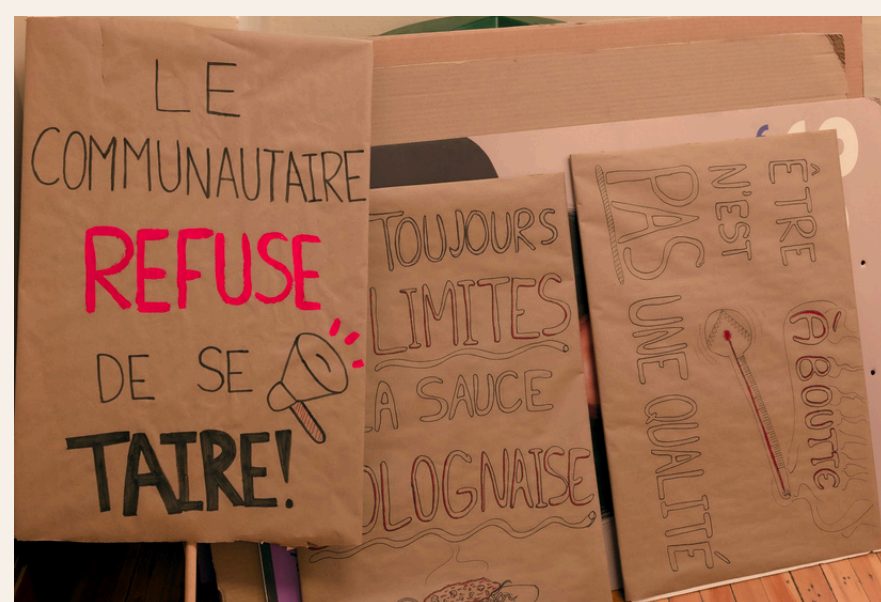 LE
COMMUNAUTAIRE
REFUSE
DE SE
TAIRE!
TOUJOURS
LIMITES
LA SAUCE
OLOGNAISE
ÊTRE
À BOUTTE
N'EST
PAS UNE QUALITÉ